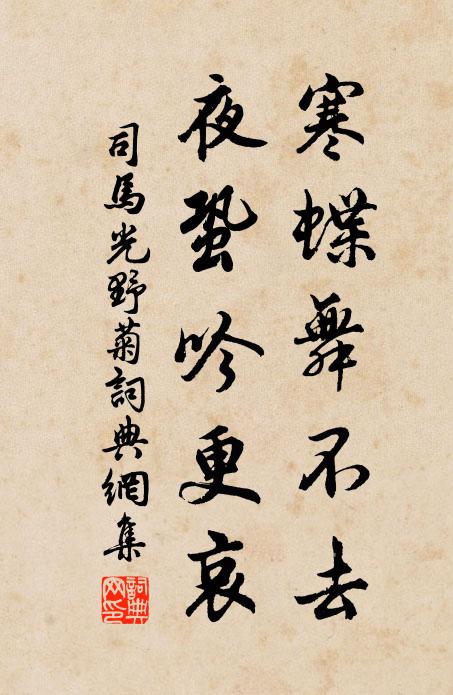 寒蝶舞不去
夜蛩吟更哀
司馬光野菊詞典網集
詞典网印